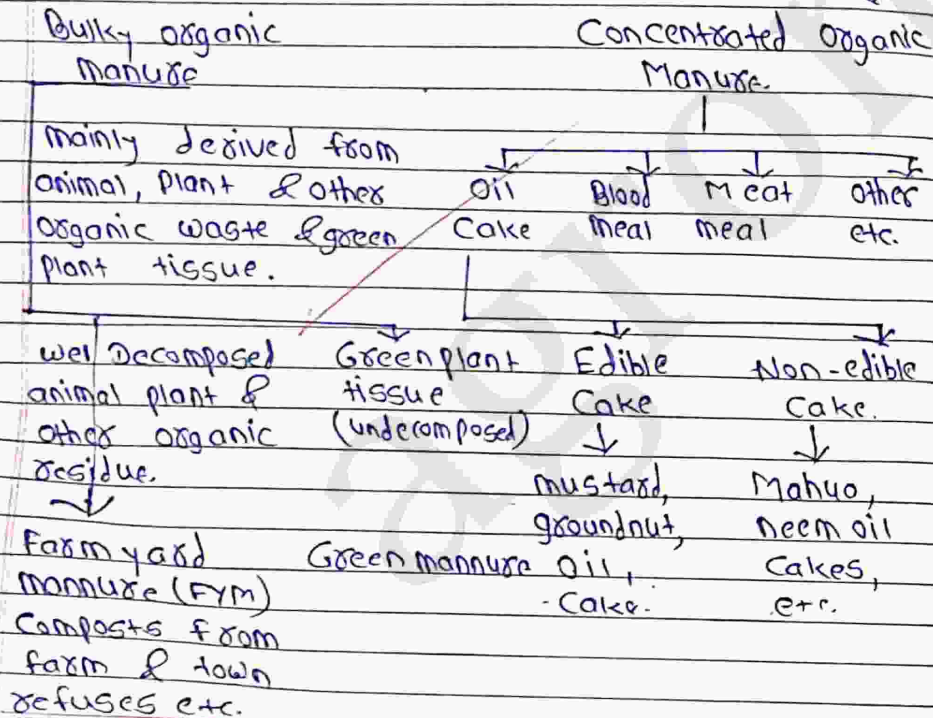 Bulky organic
manure
mainly derived from
animal, plant & other
organic waste & green
plant tissue.
Concentrated Organic
Manure.
Oil
Cake
Blood
meal
Meat
meal
other
etc.
wel Decomposed
animal plant &
other organic
residue.
Green plant
tissue
(undecomposed)
Edible
Cake
Non-edible
Cake.
mustard,
groundnut,
oil,
Cake.
Mahuo,
neem oil
Cakes,
etc.
Farmyard
mannure (FYM)
Composts from
farm & town
refuses etc.
Green mannure